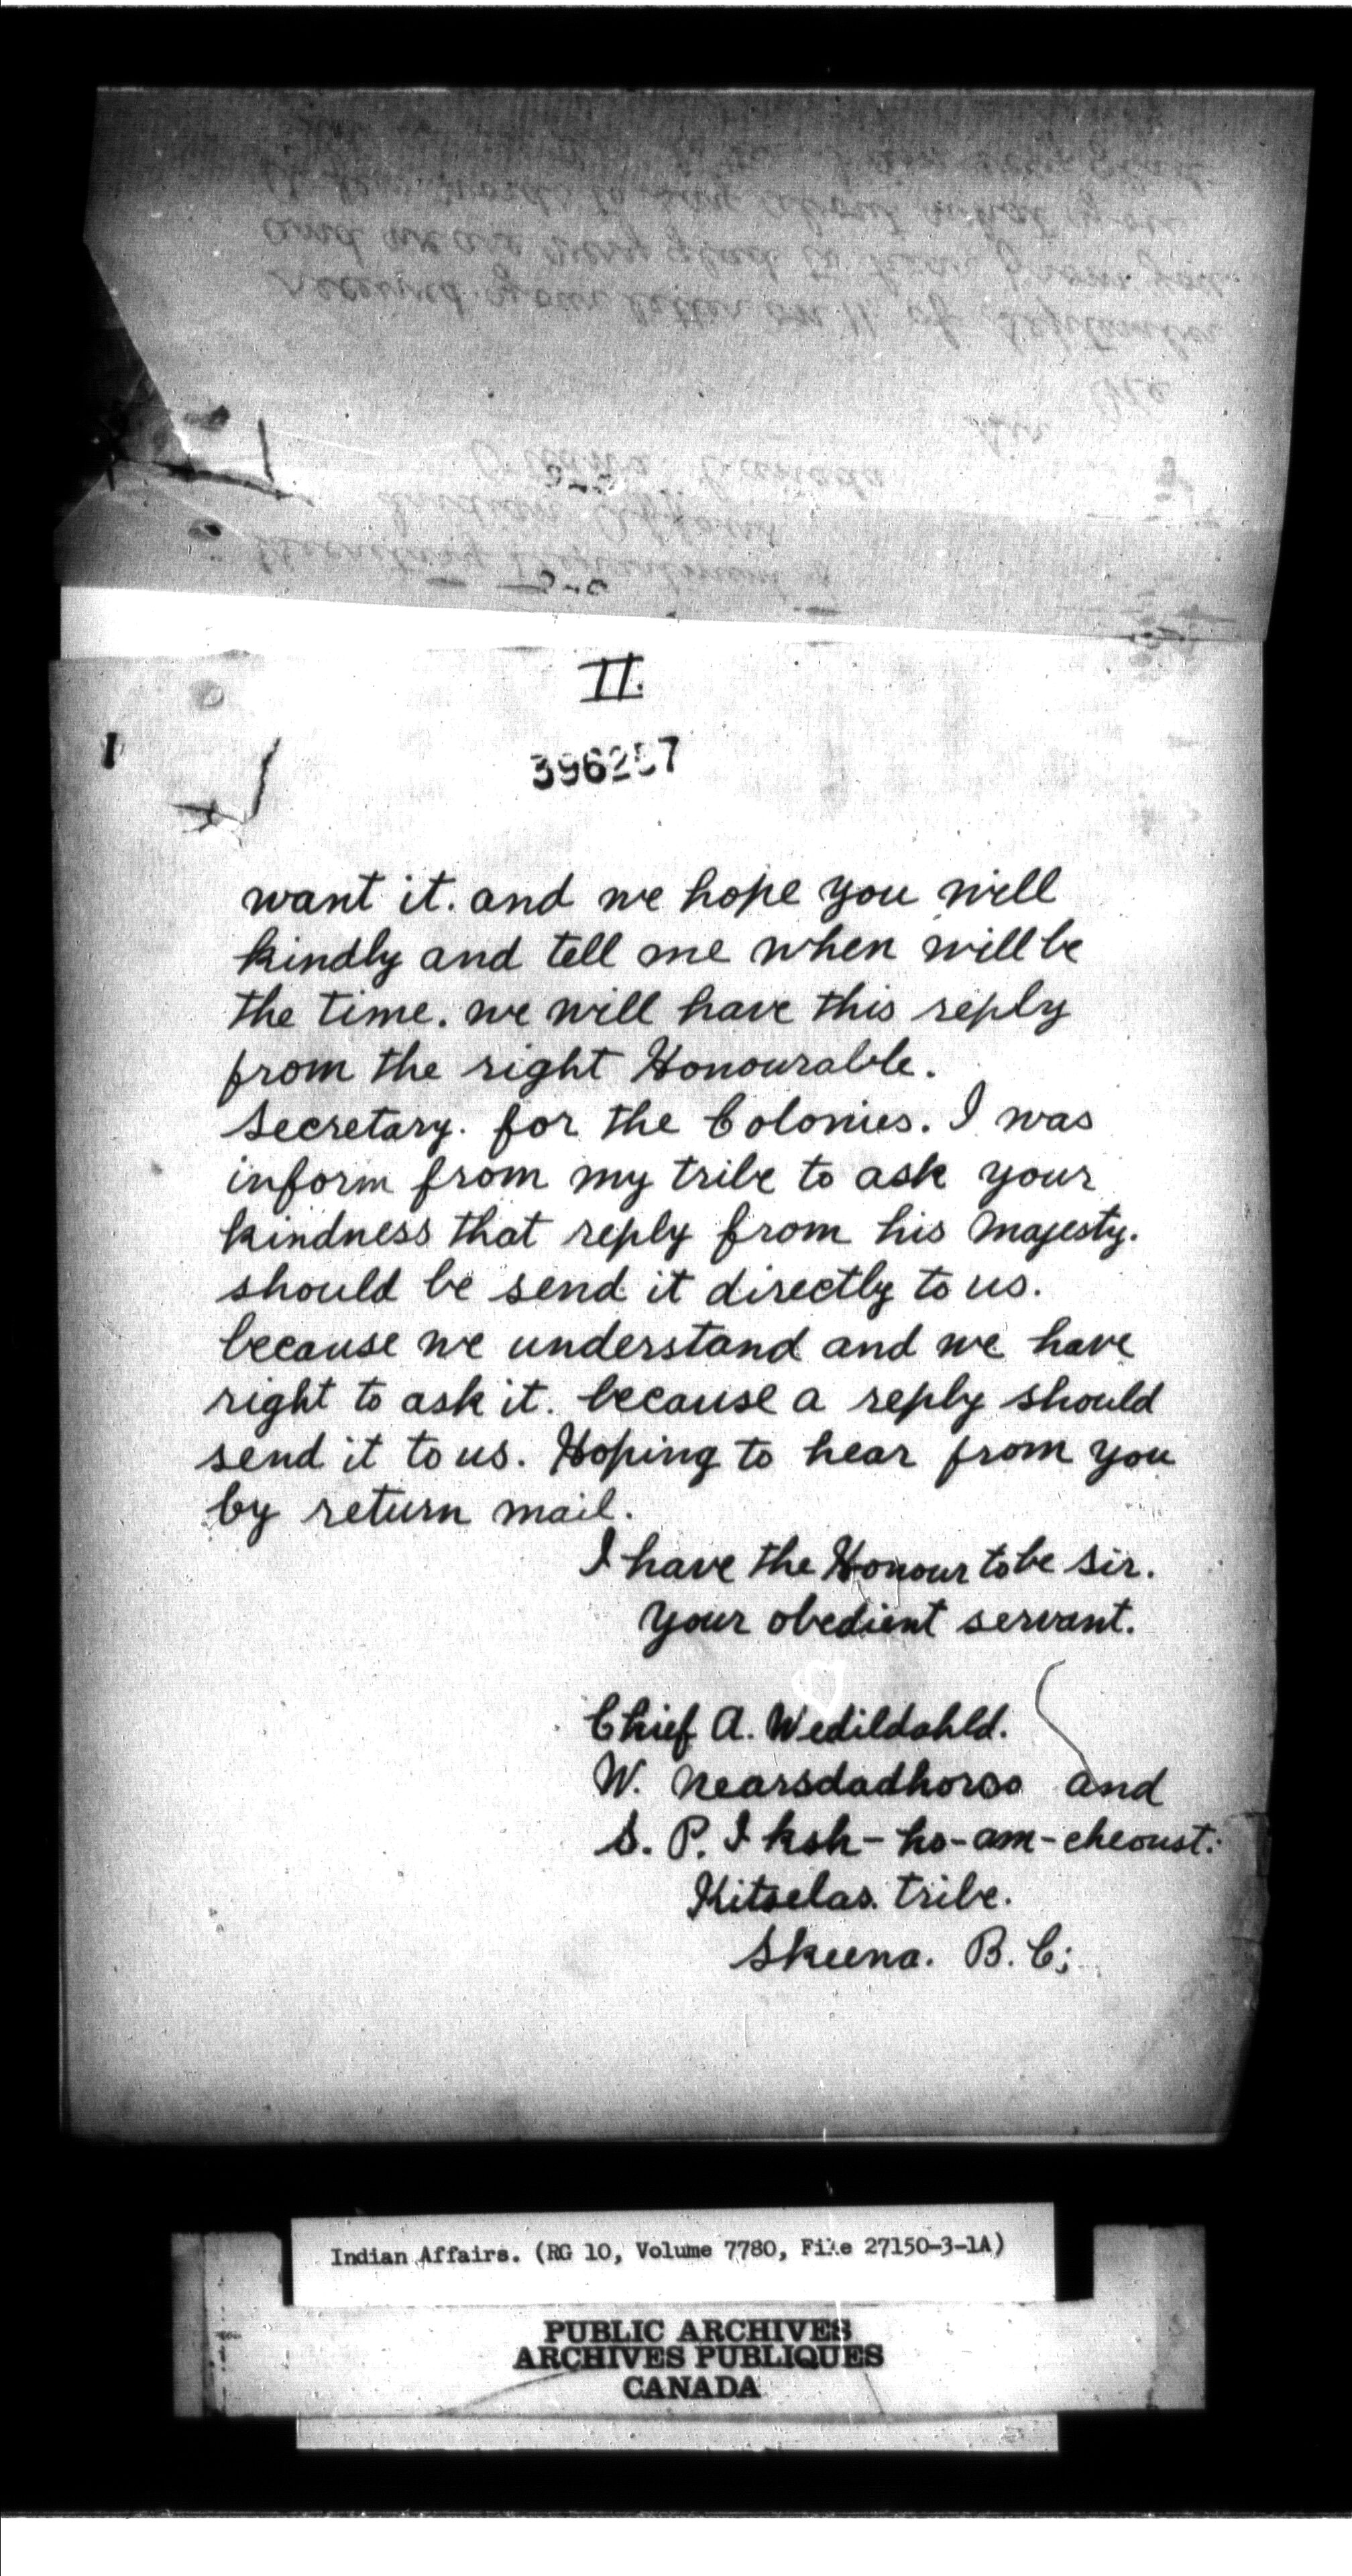 II.
396257
want it. and we hope you will
kindly and tell me when will be
the time. we will have this reply
from the right Honourable.
Secretary. for the Colonies. I was
inform from my tribe to ask your
kindness that reply from his Majesty.
should be send it directly to us.
because we understand and we have
right to ask it. because a reply should
send it to us. Hoping to hear from you
by return mail.
I have the Honour to be Sir.
your obedient servant.
Chief A. Wedildahld.
W. Nearsdadhoroo and
S. P. I ksh-ho-am-cheoust.
Kitselas. tribe.
Skeena. B. C;
Indian Affairs. (RG 10, Volume 7780, File 27150-3-1A)
PUBLIC ARCHIVES
ARCHIVES PUBLIQUES
CANADA